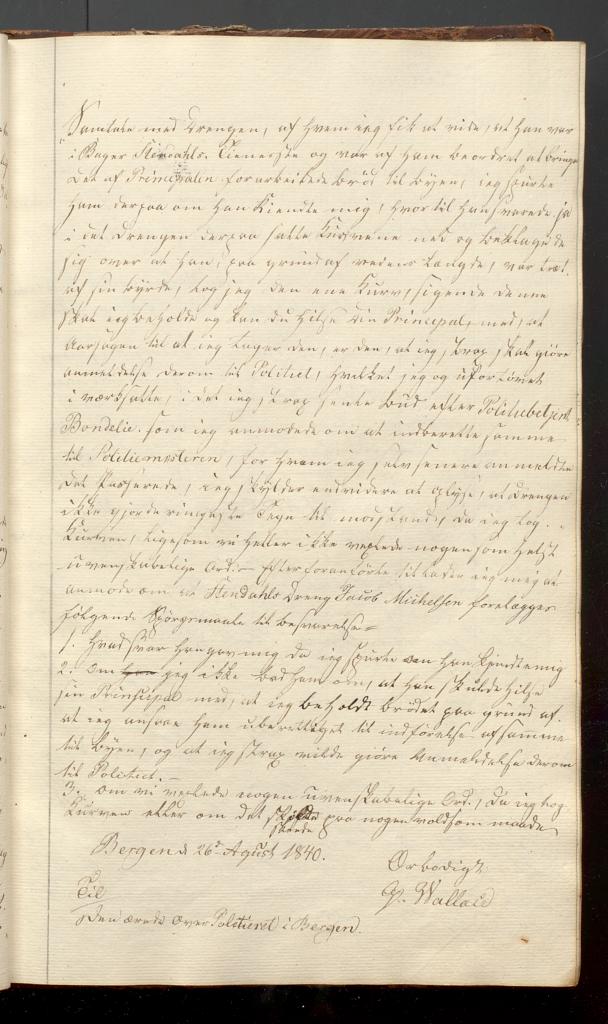 Samtale med Drengen, af hvem jeg fik at vide, at han var
i Bager Stendahls Tieneste og var af ham beordret at bringe
det af Principalen forarbeidede Brød til Byen, jeg spurte
ham derpaa om han kiendte mig, hvortil han svarede ja
i det Drengen derpaa satte Kurvene ned og beklagede
sig over at han, paa grund af veiens Længde, var træt
af sin Byrde, tog jeg den ene Kurv, sigende denne
skal jeg beholde og kan du hilse din Principal, med, at
Aarsagen til at jeg tager den, er den, at jeg strax skal giøre
anmeldelse derom til Politiet, hvilket jeg og ufortøvet
iværksatte, i det jeg strax sente Bud efter Politiebetjent
Bondelie som jeg anmodede om at indberette samme
til Politiemesteren, for hvem jeg selv senere anmeldte
det Passerede, jeg skylder endvidere at oplyse, at Drengen
ikke gjorde ringeste Tegn til modstand, da jeg tog
Kurven, ligesom vi heller ikke vexlede nogensomhelst
uvenskabelige Ord.— Efter foranførte tillader jeg mig at
anmode om at Stendahls Dreng Jacob Michelsen forelægges
følgende Spørgsmaale til besvarelse=
1. Hvad svar han gav mig da jeg spurte om han kiendte mig
2. Om jeg ikke bad ham om, at han skulde hilse
sin Principal med, at jeg beholdt brødet paa grund af
at jeg ansaae ham uberettiget til indførelse af samme
til Byen, og at jeg strax vilde giøre Anmeldelse derom
til Politiet.—
3. Om vi vexlede nogen uvenskabelige Ord, da jeg tog
Kurven eller om det skede paa nogen voldsom maade
Bergen d 26de Agust 1840.
Ærbødigst
Wallace
Til
Den ærede Over Politieret i Bergen.